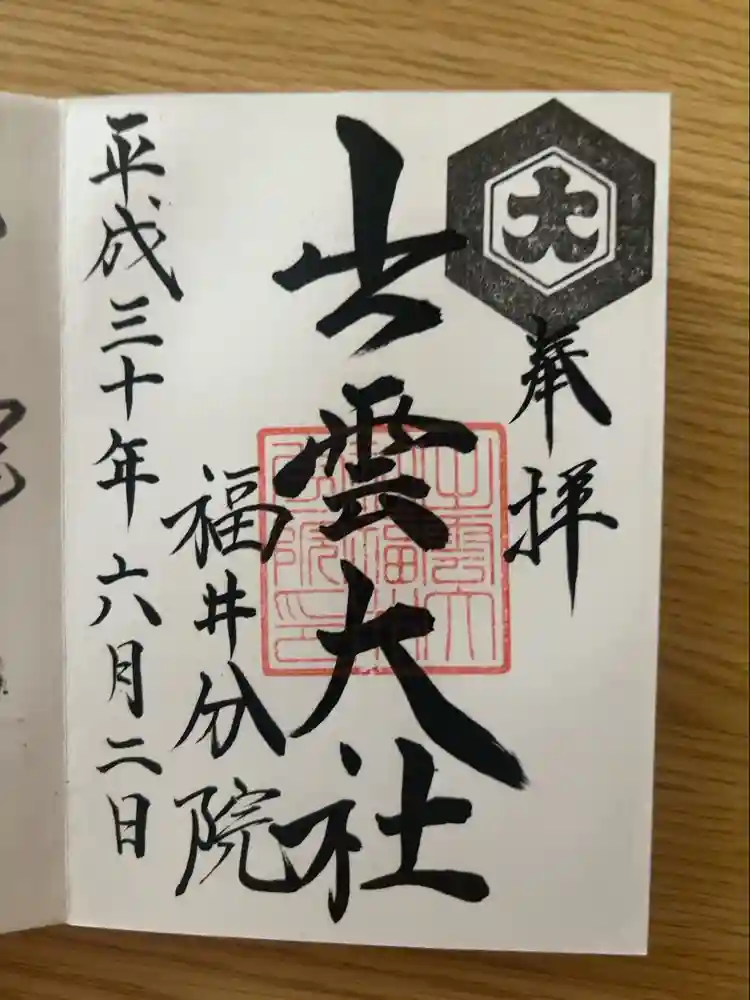 大
奉拝
出雲大社
福井分院
平成三十年六月二日